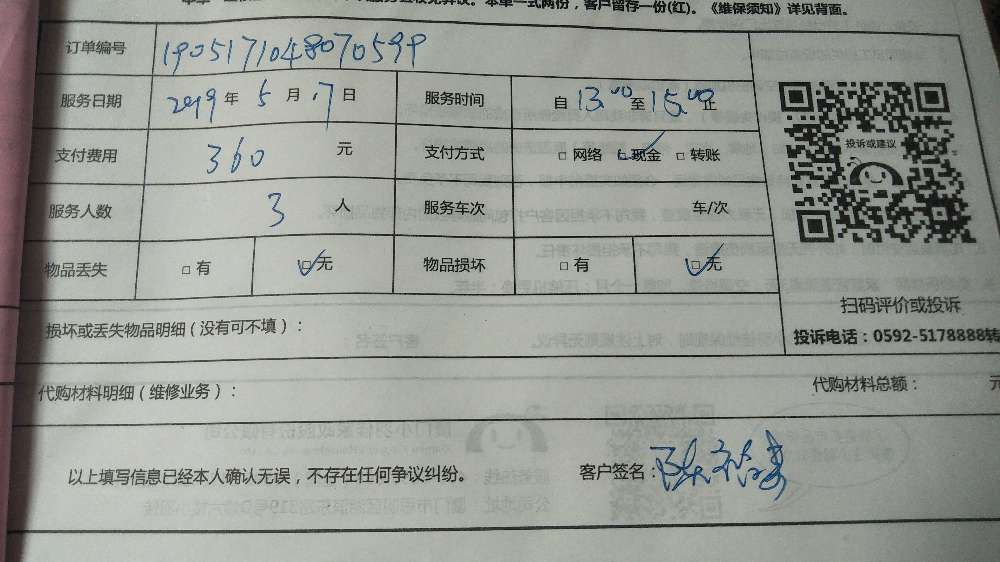 本单一式两份，客户留存一份(红)。《维保须知》详见背面。
订单编号 190517104807059９
服务日期 2019 年 5 月 17 日 服务时间 自 13:00 至 15:00 止
支付费用 360 元 支付方式 □ 网络 ☑ 现金 □ 转账
服务人数 3 人 服务车次 车/次
物品丢失 □ 有 ☑ 无 物品损坏 □ 有 ☑ 无
投诉或建议
扫码评价或投诉
投诉电话：0592-5178888转
损坏或丢失物品明细（没有可不填）：
代购材料明细（维修业务）： 代购材料总额： 元
以上填写信息已经本人确认无误，不存在任何争议纠纷。 客户签名：